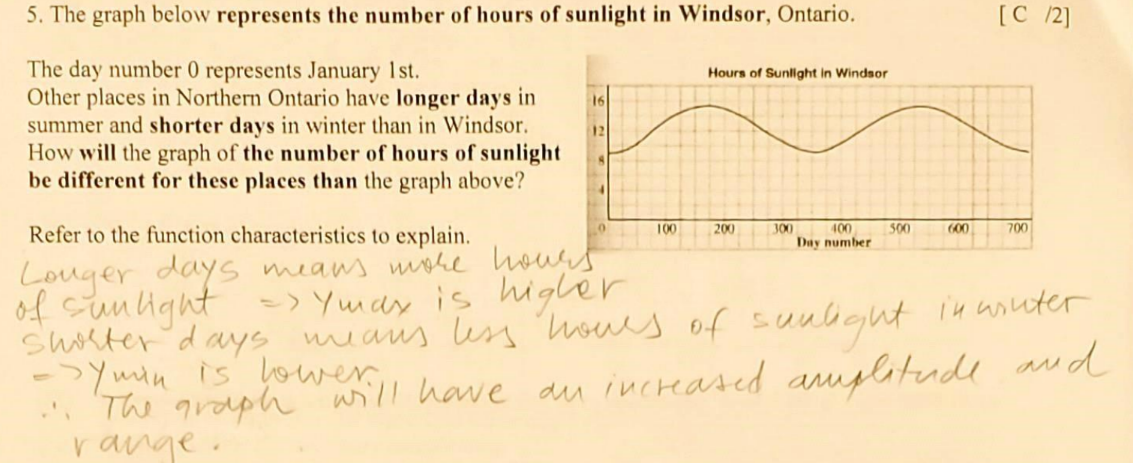 5. The graph below represents the number of hours of sunlight in Windsor, Ontario. [ C /2]
The day number 0 represents January 1st.
Other places in Northern Ontario have longer days in
summer and shorter days in winter than in Windsor.
How will the graph of the number of hours of sunlight
be different for these places than the graph above?
Refer to the function characteristics to explain.
Hours of Sunlight in Windsor
16
12
8
4
0 100 200 300 400 500 600 700
Day number
Longer days means more hours
of sunlight => Ymax is higher
shorter days means less hours of sunlight in winter
=> Ymin is lower.
∴ The graph will have an increased amplitude and
range.